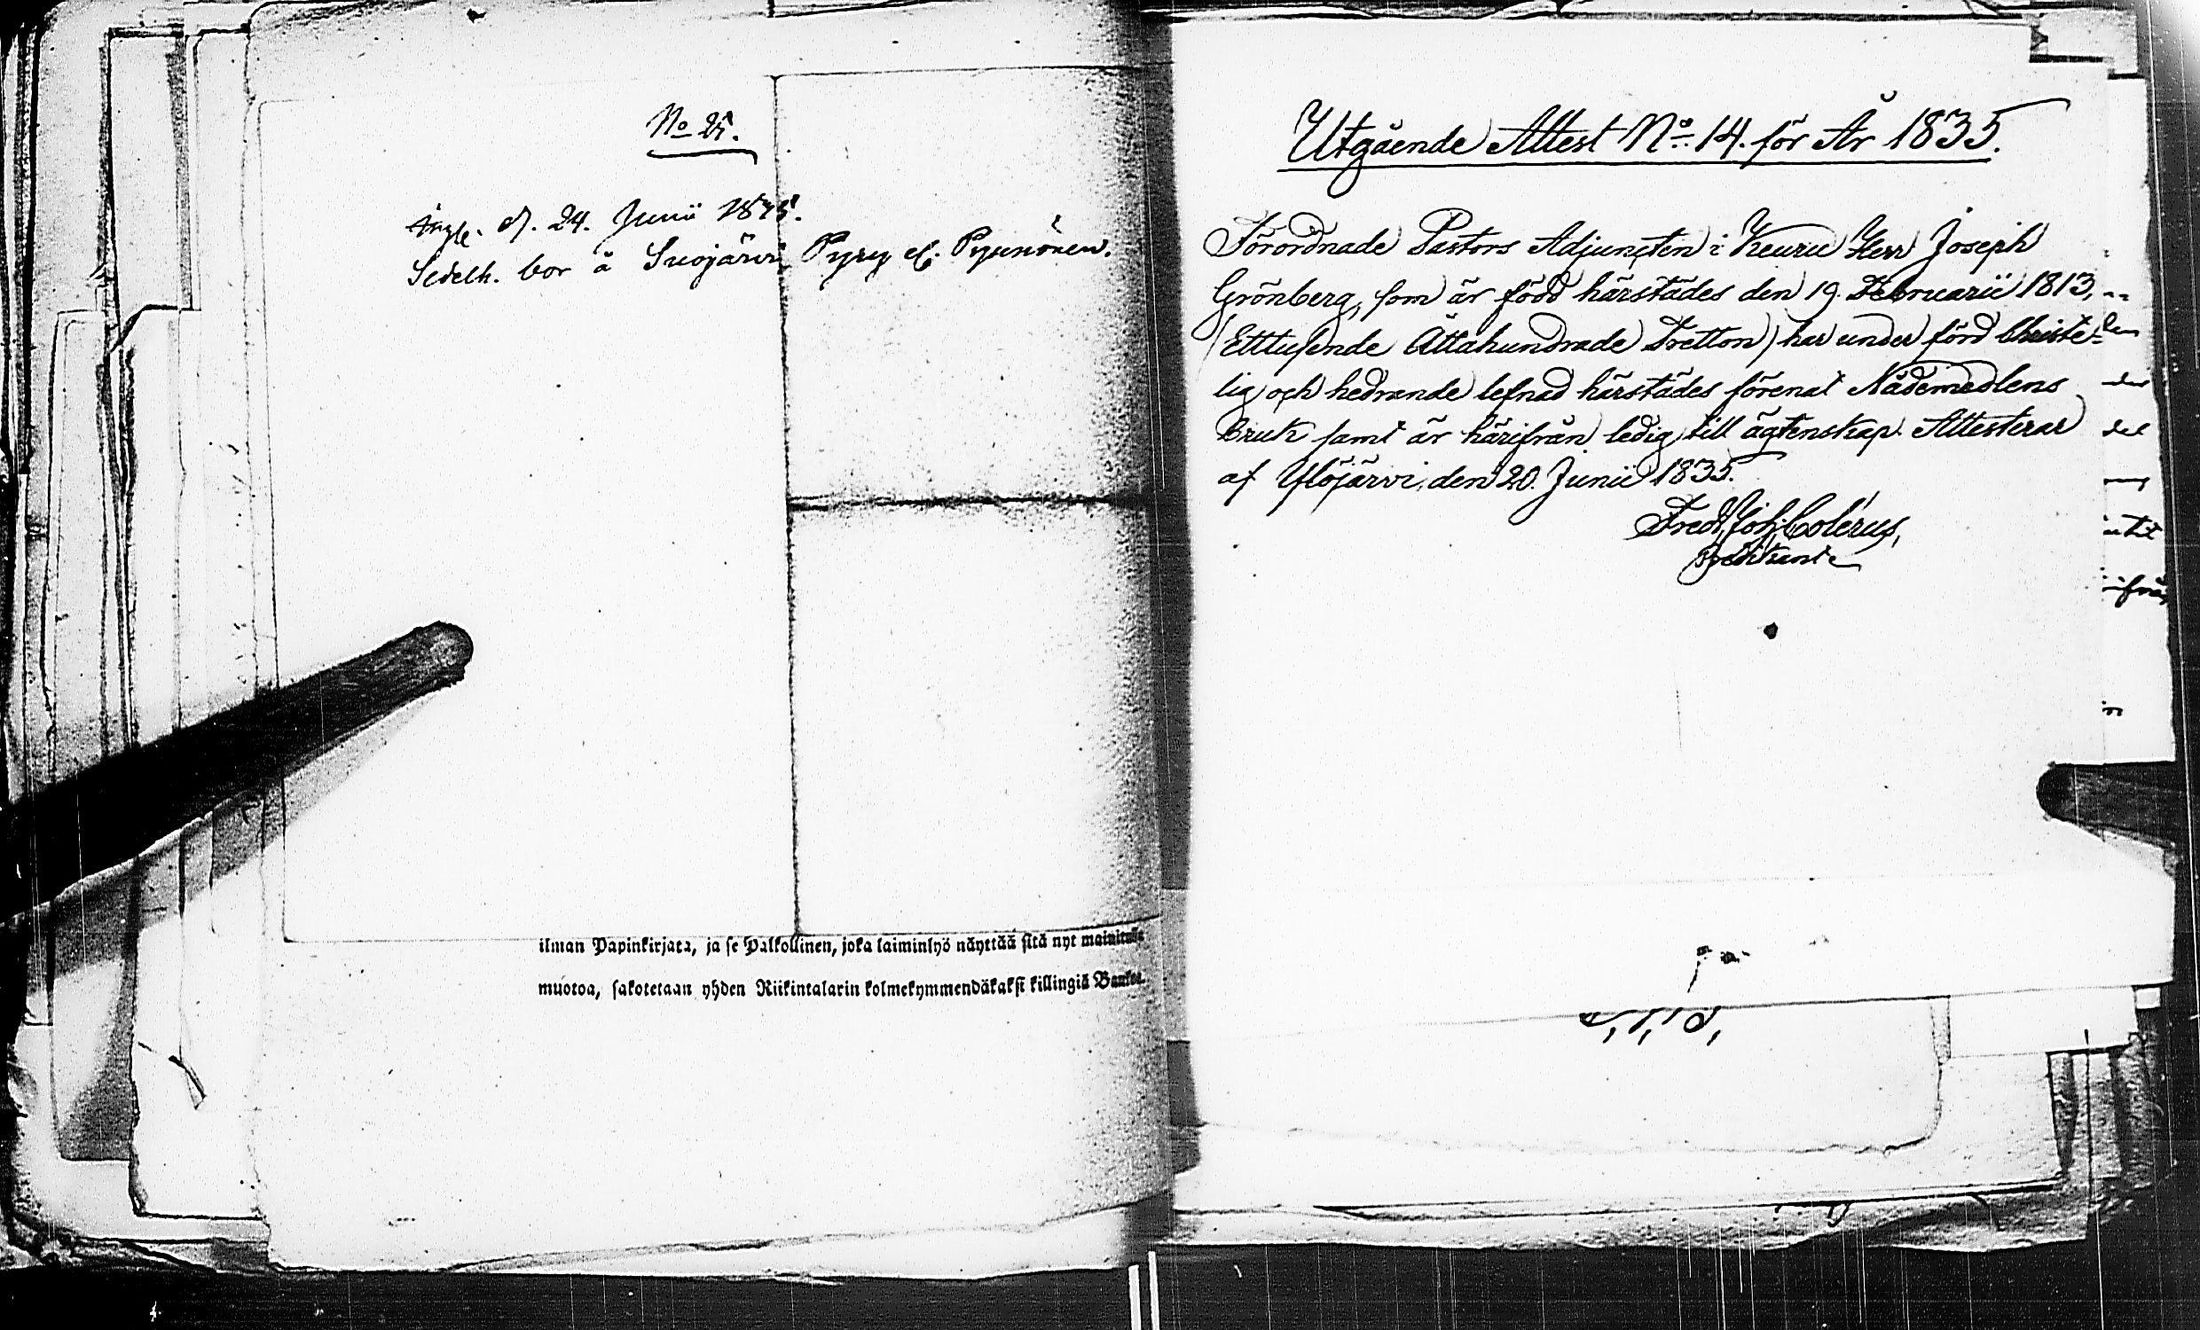 No 25.
Ingl. d. 24. Junii 1835.
Sedelh. bor å Suojärvi Pyry el. Pynnönen.
ilman Papinkirjata, ja se Palkollinen, joka laiminlyö näyttää sitä nyt mainitulla
muotoa, sakotetaan yhden Riikintalarin kolmekymmendäkaksi killingiä Banko.
Utgående Attest No. 14. för År 1835.
Förordnade Pastors Adjuncten i Keuru Herr Joseph
Grönberg, som är född härstädes den 19. Februarii 1813,
(Ettusende Åttahundrade Tretton) har under förd Christe-
lig och hedrande lefnad härstädes förenat Nådemedlens
Bruk samt är härifrån ledig till ägtenskap. Attesterar
af Ylöjärvi, den 20. Junii 1835.
Fred. Joh. Colérus,